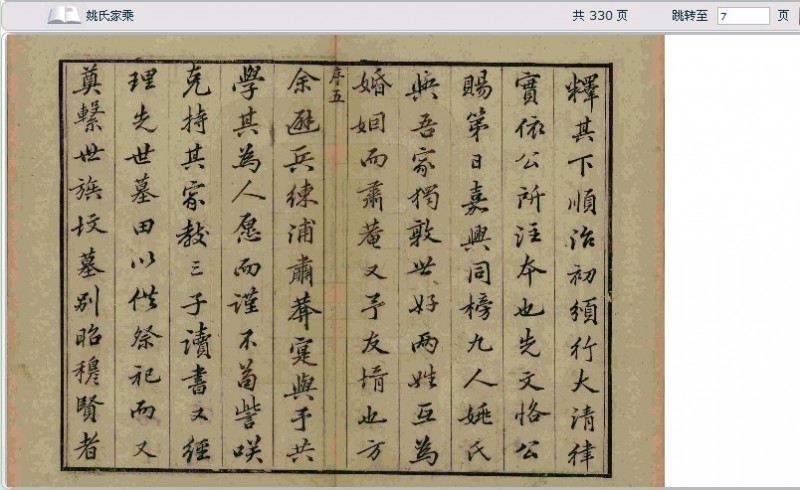 姚氏家乘
共 330 页
跳转至 7 页
釋其下順治初頒行大清律
實依公所注本也先文恪公
賜第日嘉興同榜九人姚氏
與吾家獨敦世好兩姓互為
婚姻而肅菴又予友壻也方
序五
余避兵練浦肅菴寔與予共
學其為人愿而謹不苟訾咲
克持其家教三子讀書又經
理先世墓田以供祭祀而又
奠繫世族墳墓別昭穆賢者